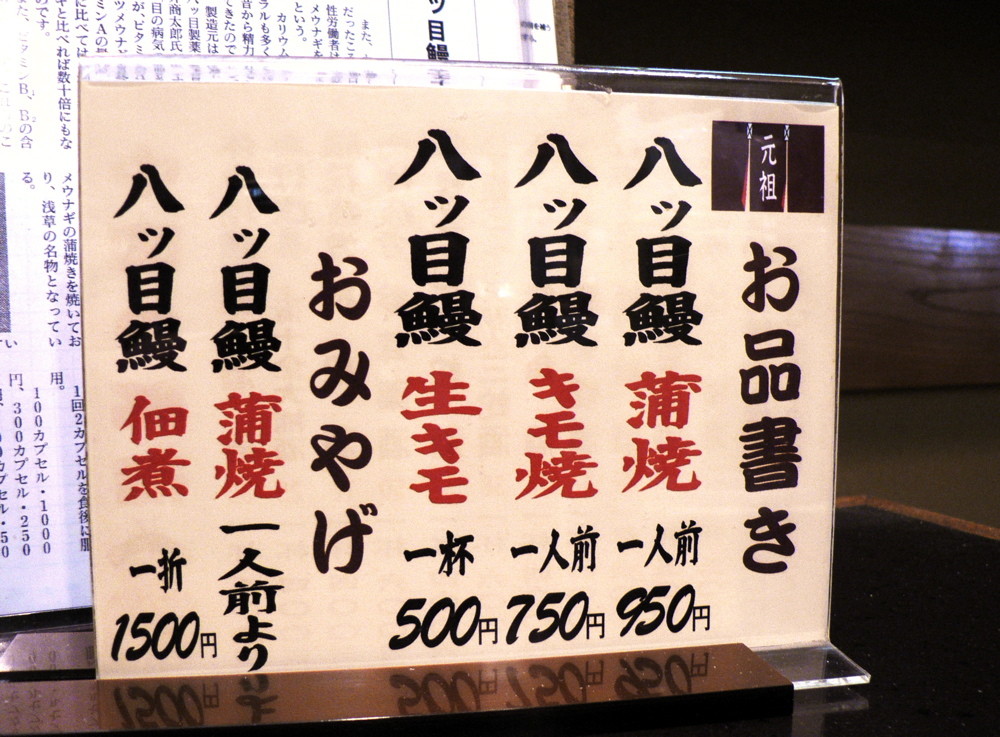 元祖
お品書き
八ッ目鰻 蒲焼 一人前 950円
八ッ目鰻 キモ焼 一人前 750円
八ッ目鰻 生キモ 一杯 500円
おみやげ
八ッ目鰻 蒲焼 一人前より
八ッ目鰻 佃煮 一折 1500円
ッ目鰻
また、
だったこ
性労働者は
メウナギを
という。
カリウム
ラルも多く
昔から精力
てきたので
製造元は
八ッ目製薬
井商太郎氏
目の病気
が、ビタミ
ミンAの
に比べては
キと比べれば数十倍にもな
のです。
また、ビタミンB₁、B₂の含
メウナギの蒲焼きを焼いてお
り、浅草の名物となってい
る。
1回2カプセルを食後に服
用。
100カプセル・1000
円、300カプセル・250